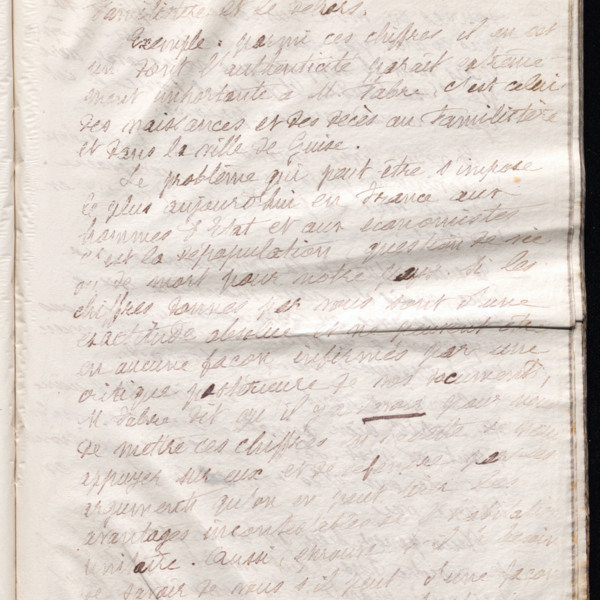 Familistère et le dehors.
Exemple : parmi ces chiffres il en est
un dont l'authenticité paraît extrême
ment importante à M. Fabre, c'est celui
des naissances et des décès au Familistère
et dans la ville de Guise.
Le problème qui peut être s'impose
le plus aujourd'hui en France aux
hommes d'Etat et aux économistes
c'est la dépopulation, question de vie
ou de mort pour notre pays. Si les
chiffres donnés par nous sont d'une
exactitude absolue et ne peuvent être
en aucune façon infirmés par une
critique postérieure de nos documents,
M. Fabre dit qu'il y a pour nous
de mettre ces chiffres en
appuyer sur eux et de
arguments qu'on en peut des
avantages incontestables de l'habitation
unitaire. Aussi, M. a besoin
de savoir de nous s'il peut d'une façon